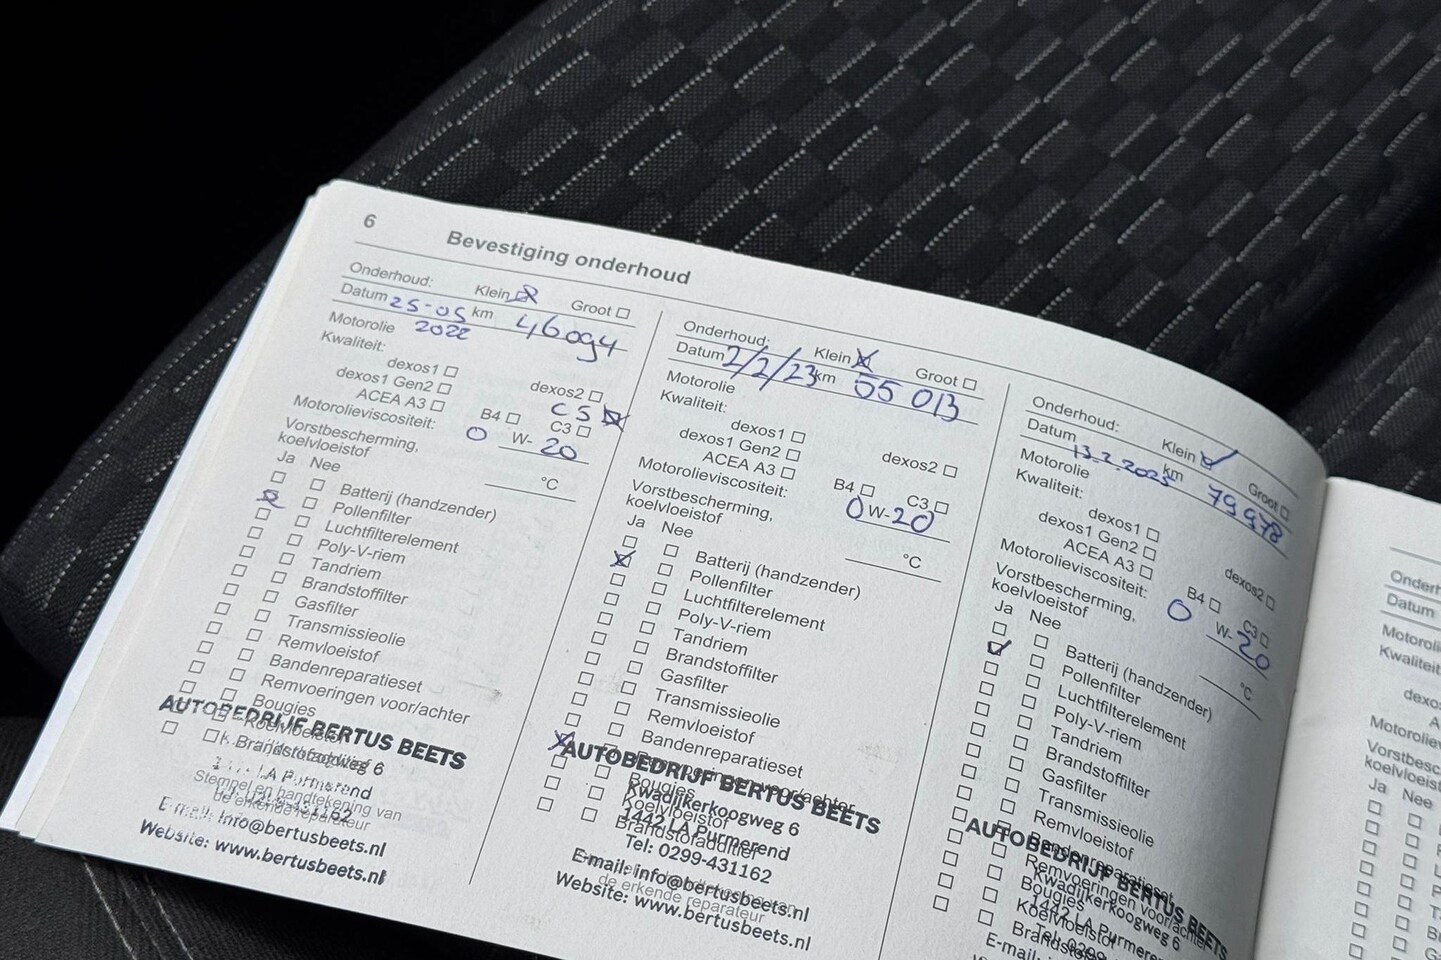 6
Bevestiging onderhoud
Onderhoud: Klein Groot
Datum 25-05 km 46094
2022
Motorolie
Kwaliteit:
dexos1
dexos2
dexos1 Gen2
C5
ACEA A3 B4 C3
Motorolieviscositeit: 0 W-20
Vorstbescherming,
koelvloeistof °C
Ja Nee
Batterij (handzender)
Pollenfilter
Luchtfilterelement
Poly-V-riem
Tandriem
Brandstoffilter
Gasfilter
Transmissieolie
Remvloeistof
Bandenreparatieset
Remvoeringen voor/achter
Bougies
Koelvloeistof
AUTOBEDRIJF BERTUS BEETS
Stempel en handtekening van
de erkende reparateur
E-mail: info@bertusbeets.nl
Website: www.bertusbeets.nl
Onderhoud: Klein Groot
Datum 2/2/23 km 55 013
Motorolie
Kwaliteit:
dexos1
dexos2
dexos1 Gen2
ACEA A3 B4 C3
Motorolieviscositeit: 0 W-20
Vorstbescherming,
koelvloeistof °C
Ja Nee
Batterij (handzender)
Pollenfilter
Luchtfilterelement
Poly-V-riem
Tandriem
Brandstoffilter
Gasfilter
Transmissieolie
Remvloeistof
Bandenreparatieset
Remvoeringen voor/achter
Bougies
Koelvloeistof
Brandstofadditief
AUTOBEDRIJF BERTUS BEETS
Kwadijkerkoogweg 6
1442 LA Purmerend
Tel: 0299-431162
E-mail: info@bertusbeets.nl
de erkende reparateur
Website: www.bertusbeets.nl
Onderhoud: Klein Groot
Datum 13.2.2025 km 79978
Motorolie
Kwaliteit:
dexos1
dexos2
dexos1 Gen2
ACEA A3 B4 C3
Motorolieviscositeit: 0 W-20
Vorstbescherming,
koelvloeistof °C
Ja Nee
Batterij (handzender)
Pollenfilter
Luchtfilterelement
Poly-V-riem
Tandriem
Brandstoffilter
Gasfilter
Transmissieolie
Remvloeistof
Bandenreparatieset
Remvoeringen voor/achter
Bougies
Koelvloeistof
AUTOBEDRIJF BERTUS BEETS
Kwadijkerkoogweg 6
1442 LA Purmerend
Datum
Ja Nee